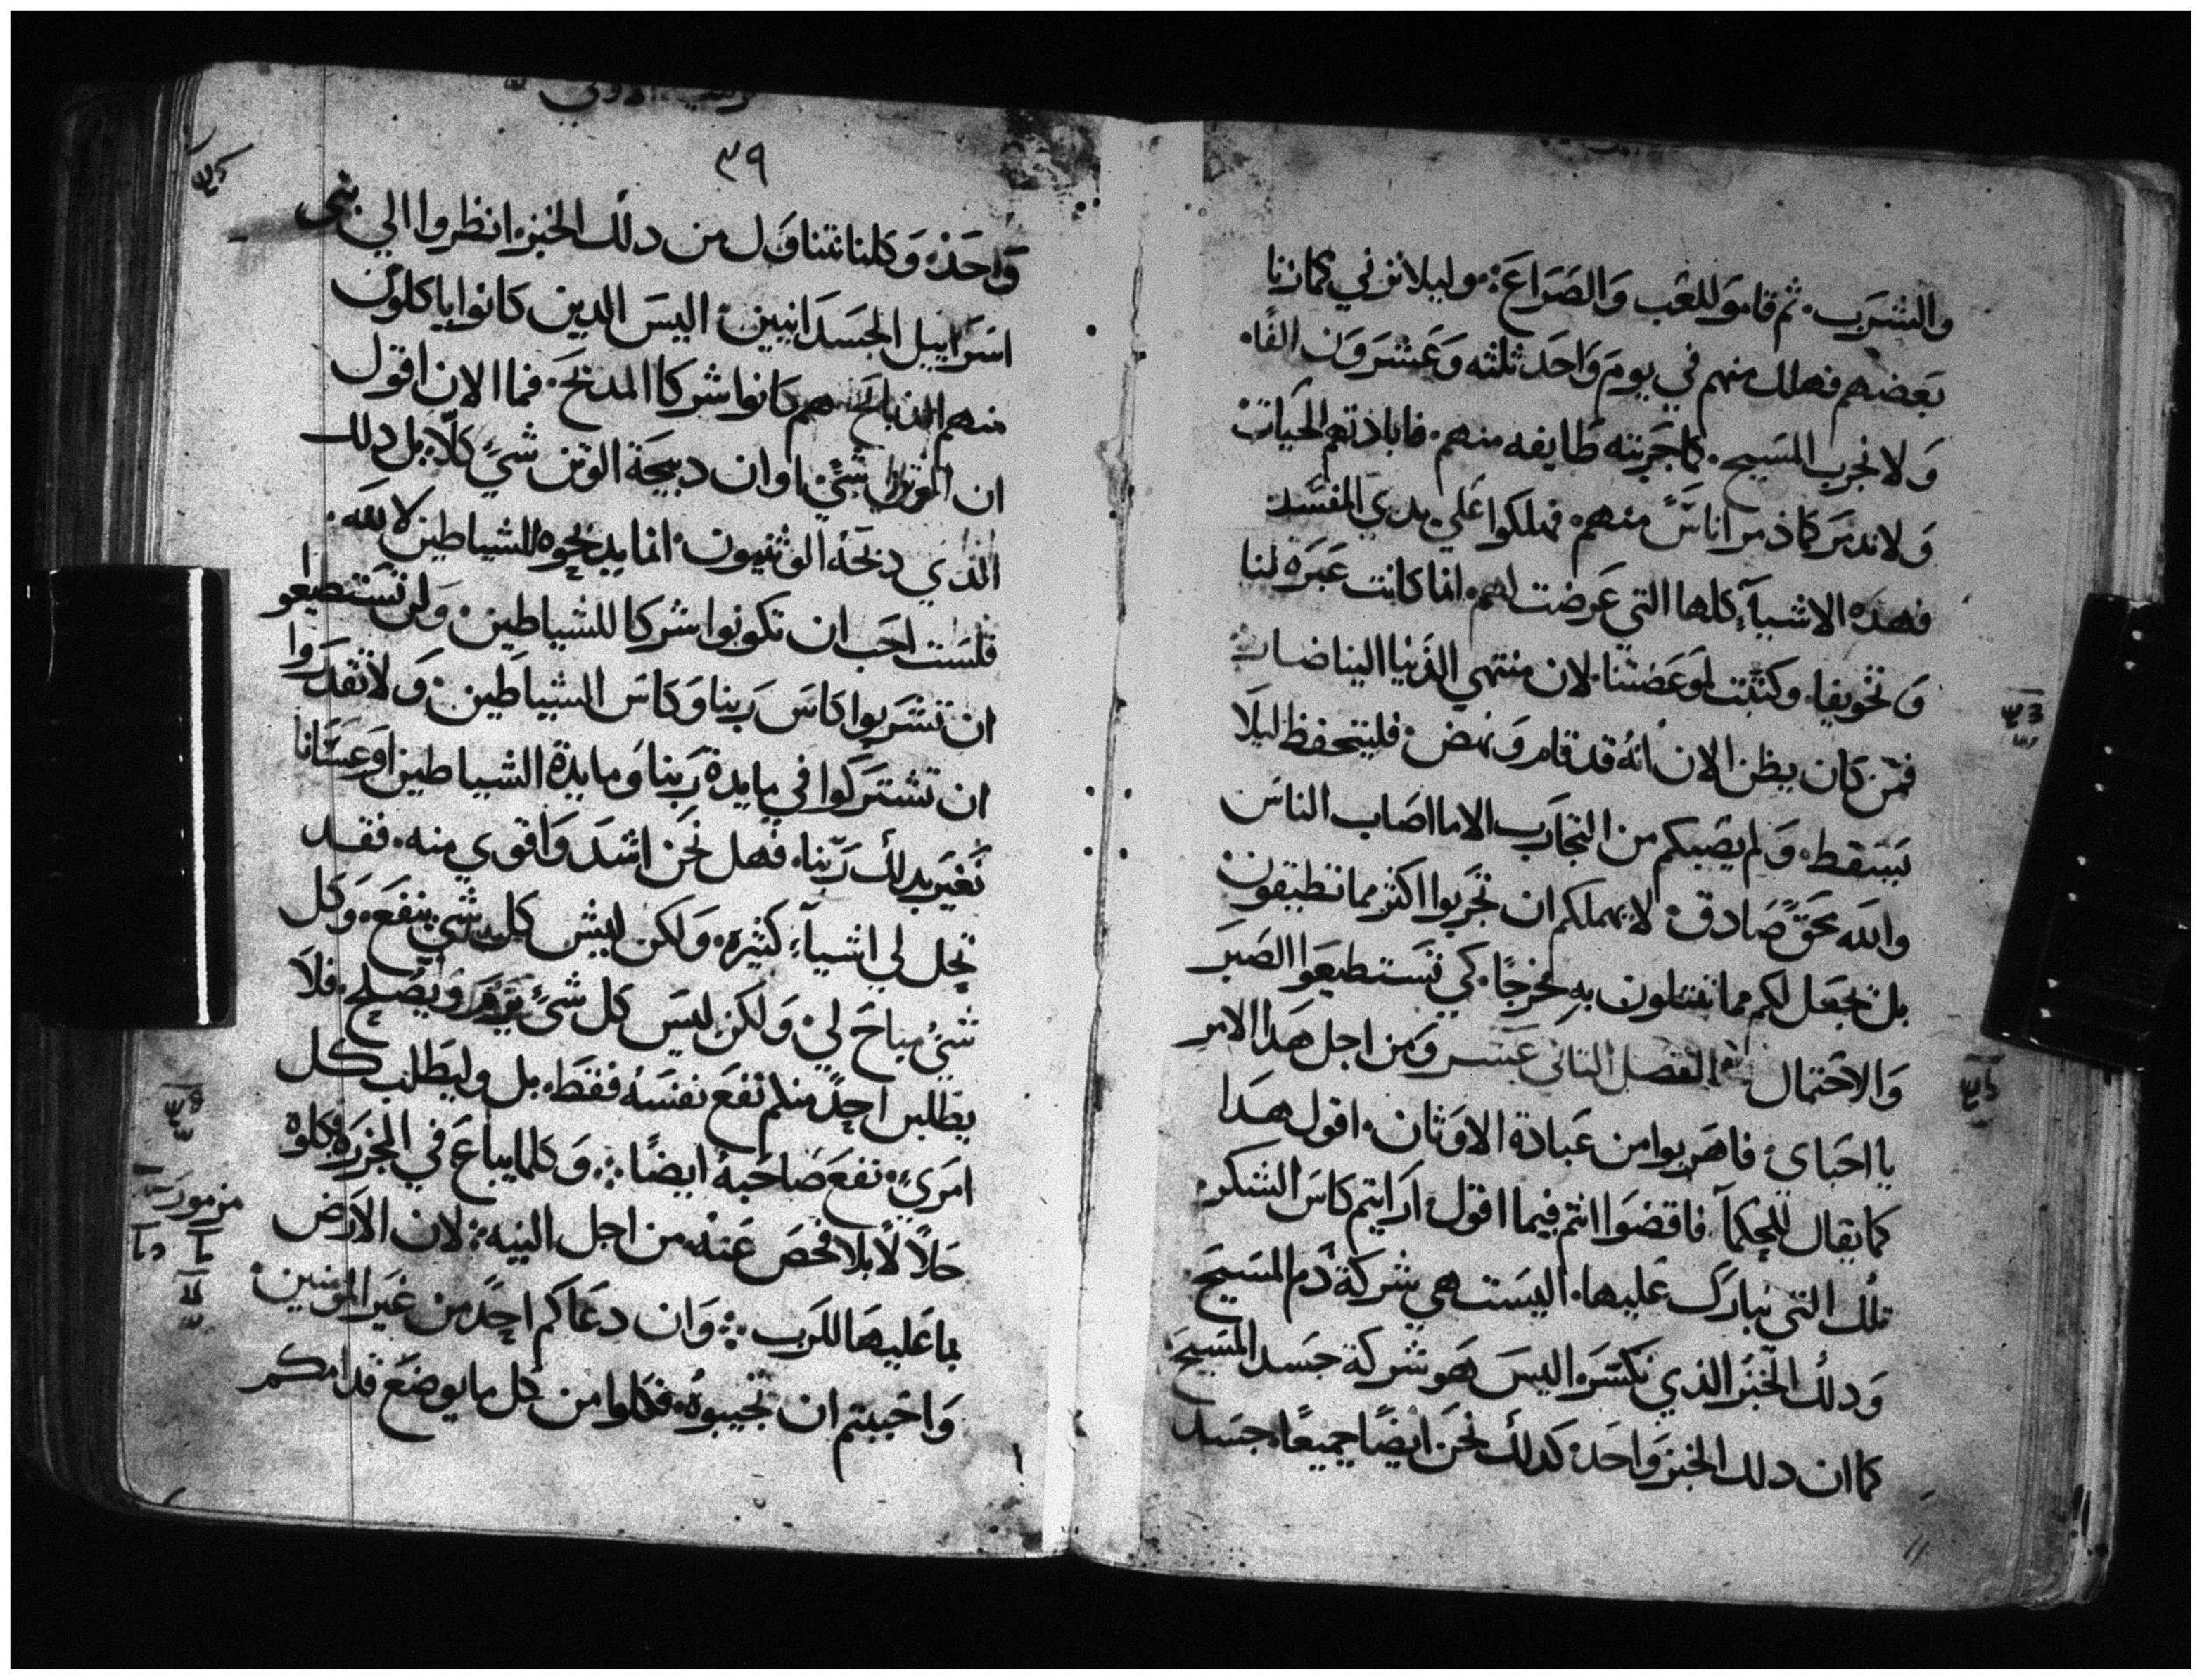 والشرب. ثم قاموا للعب والصراع: وليلا نزني كما زنا
بعضهم فهلك منهم في يوم واحد ثلثه وعشرون الفا.
ولا نجرب المسيح. كما جربته طايفه منهم. فابادتهم الحيات
ولا تدمر كما ذمر اناس منهم. فهلكوا علي يدي المفسد
فهده الاشيآء كلها التي عرضت لهم. انما كانت عبره لنا
وتخويفا. وكتبت لموعضتنا. لان منتهي الدنيا الينا ضات
فمن كان يظن الان انه قد قام ونهض. فليتحفظ ليلا
يسقط. ولم يصبكم من التجارب الا ما اصاب الناس
والله محق صادق. لا يهملكم ان تجربوا اكثر مما تطيقون
بل يجعل لكم مما تبتلون به مخرجا. كي تستطيعوا الصبر
والاحتمال الفصل الثاني عشر ومن اجل هدا الامر
يا احباي. فاهربوا من عبادة الاوثان. اقول هدا
كما يقال للحكمآ. فاقضوا انتم فيما اقول. ارايتم كاس الشكر.
تلك التي نبارك عليها. اليست هي شركة دم المسيح.
ودلك الخبز الذي نكسر. اليس هو شركة جسد المسيح
كما ان دلك الخبز واحد. كدلك نحن ايضا جميعا. جسد
٣٩
واحد. وكلنا نتناول من دلك الخبز. انظروا الي بني
اسراييل الجسدانيين. اليس الدين كانوا ياكلون
منهم الذبايح هم كانوا شركا المدبح. فما الان اقول
ان الوثن شيء. او ان دبيحة الوثن شيء كلا. بل دلك
الذي دبحه الوثنيون. انما يدبحوه للشياطين لا لله.
فلست احب ان تكونوا شركا للشياطين. ولن تستطيعوا
ان تشربوا كاس ربنا وكاس الشياطين. ولا تقدروا
ان تشتركوا في مايدة ربنا ومايدة الشياطين او عسانا
نغير بدلك ربنا. فهل نحن اشد واقوي منه. فقد
تحل لي اشيآء كثيره. ولكن ليس كل شي ينفع. وكل
شي مباح لي. ولكن ليس كل شيء ويصلح. فلا
يطلبن احد منكم نفع نفسه فقط. بل وليطلب كل
امرىء. نفع صاحبه ايضا. وكلما يباع في المجزره فكلوه
حلالا بلا فحص عنه. من اجل النيه. لان الارض
بما عليها للرب. وان دعاكم احد من غير المومنين.
واحببتم ان تجيبوه. فكلوا من كل ما يوضع قدامكم
مزمور